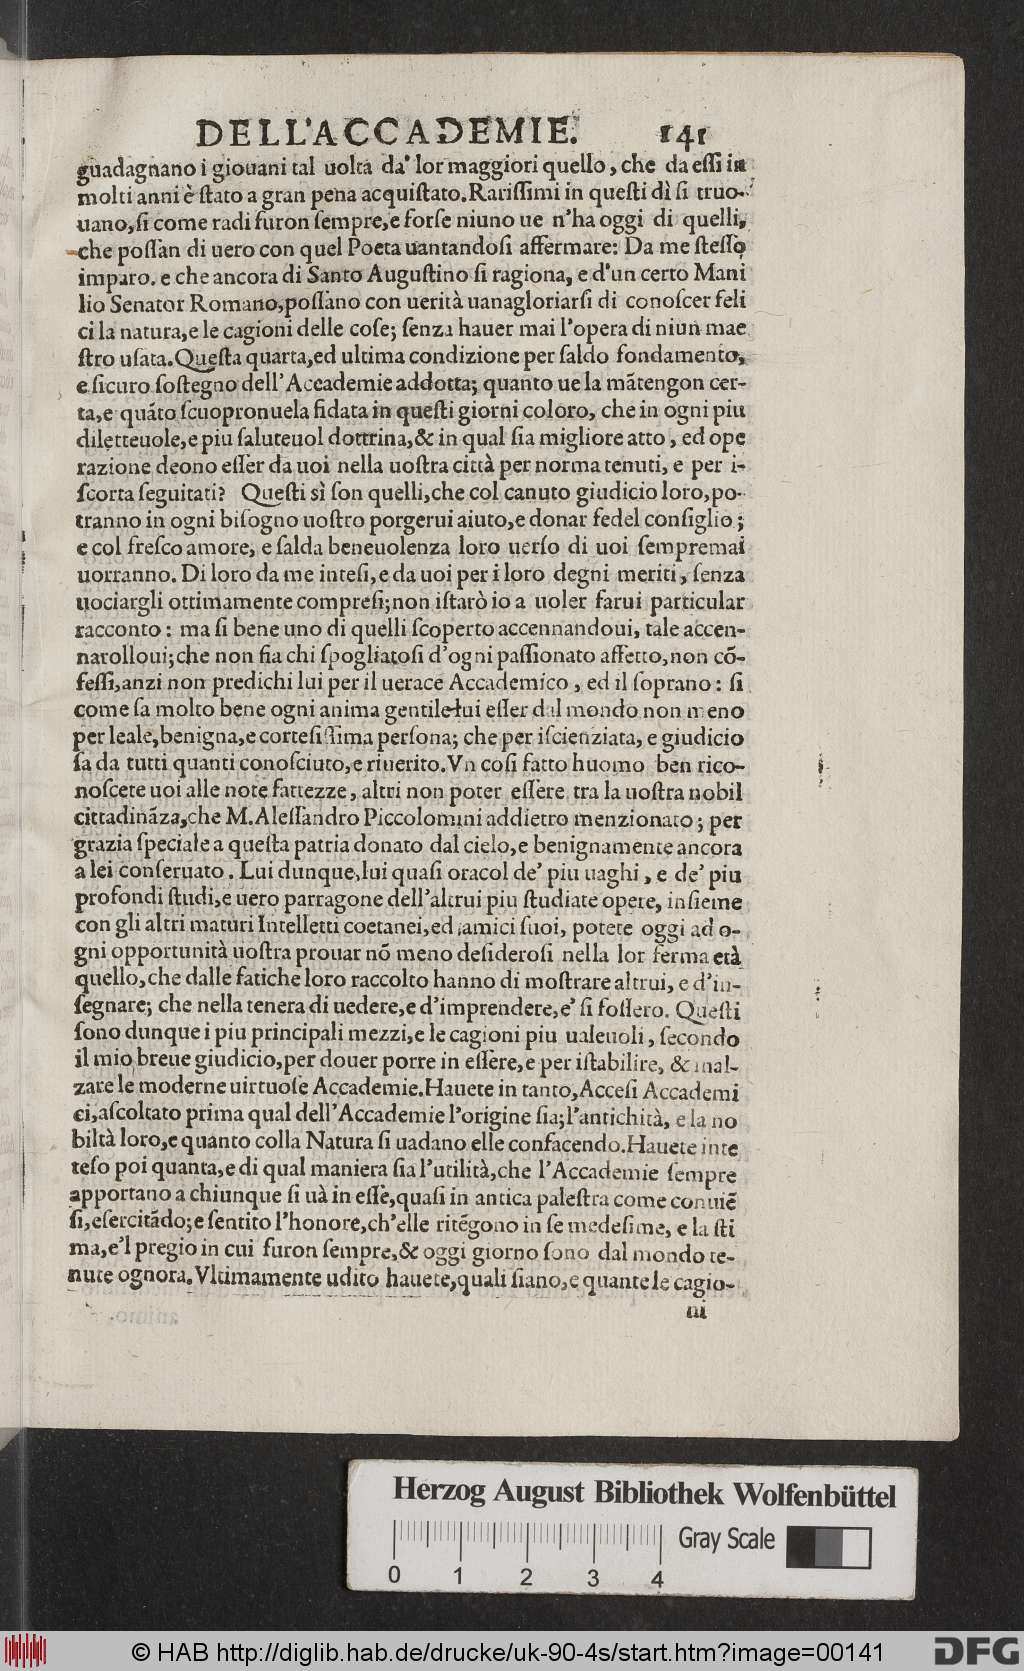 DELL'ACCADEMIE. 141
guadagnano i giouani tal uolta da' lor maggiori quello, che da eſſi in
molti anni è ſtato a gran pena acquiſtato. Rariſſimi in queſti dì ſi truo-
uano, ſi come radi furon ſempre, e forſe niuno ue n'ha oggi di quelli,
che poſſan di uero con quel Poeta uantandoſi affermare: Da me ſteſſo
imparo. e che ancora di Santo Auguſtino ſi ragiona, e d'un certo Mani
lio Senator Romano, poſſano con uerità uanagloriarſi di conoſcer feli
ci la natura, e le cagioni delle coſe; ſenza hauer mai l'opera di niun mae
ſtro uſata. Queſta quarta, ed ultima condizione per ſaldo fondamento,
e ſicuro ſoſtegno dell'Accademie addotta; quanto ue la mãtengon cer-
ta, e quãto ſcuopronuela fidata in queſti giorni coloro, che in ogni piu
diletteuole, e piu ſaluteuol dottrina, & in qual ſia migliore atto, ed ope
razione deono eſſer da uoi nella uoſtra città per norma tenuti, e per i-
ſcorta ſeguitati? Queſti sì ſon quelli, che col canuto giudicio loro, po-
tranno in ogni biſogno uoſtro porgerui aiuto, e donar fedel conſiglio;
e col freſco amore, e ſalda beneuolenza loro uerſo di uoi ſempremai
uorranno. Di loro da me inteſi, e da uoi per i loro degni meriti, ſenza
uociargli ottimamente compreſi; non iſtarò io a uoler farui particular
racconto: ma ſi bene uno di quelli ſcoperto accennandoui, tale accen-
narolloui; che non ſia chi ſpogliatoſi d'ogni paſſionato affetto, non cõ-
feſſi, anzi non predichi lui per il uerace Accademico, ed il ſoprano: ſi
come ſa molto bene ogni anima gentile lui eſſer dal mondo non meno
per leale, benigna, e corteſiſſima perſona; che per iſcienziata, e giudicio
ſa da tutti quanti conoſciuto, e riuerito. Vn coſi fatto huomo ben rico-
noſcete uoi alle note fattezze, altri non poter eſſere tra la uoſtra nobil
cittadinãza, che M. Aleſſandro Piccolomini addietro menzionato; per
grazia ſpeciale a queſta patria donato dal cielo, e benignamente ancora
a lei conſeruato. Lui dunque, lui quaſi oracol de' piu uaghi, e de' piu
profondi ſtudi, e uero parragone dell'altrui piu ſtudiate opere, inſieme
con gli altri maturi Intelletti coetanei, ed amici ſuoi, potete oggi ad o-
gni opportunità uoſtra prouar nõ meno deſideroſi nella lor ferma età
quello, che dalle fatiche loro raccolto hanno di moſtrare altrui, e d'in-
ſegnare; che nella tenera di uedere, e d'imprendere, e' ſi foſſero. Queſti
ſono dunque i piu principali mezzi, e le cagioni piu ualeuoli, ſecondo
il mio breue giudicio, per douer porre in eſſere, e per iſtabilire, & inal-
zare le moderne uirtuoſe Accademie. Hauete in tanto, Acceſi Accademi
ci, aſcoltato prima qual dell'Accademie l'origine ſia; l'antichità, e la no
biltà loro, e quanto colla Natura ſi uadano elle confacendo. Hauete inte
teſo poi quanta, e di qual maniera ſia l'utilità, che l'Accademie ſempre
apportano a chiunque ſi uà in eſſe, quaſi in antica paleſtra come conuiẽ
ſi, eſercitãdo; e ſentito l'honore, ch'elle ritẽgono in ſe medeſime, e la ſti
ma, e'l pregio in cui furon ſempre, & oggi giorno ſono dal mondo te-
nute ognora. Vltimamente udito hauete, quali ſiano, e quante le cagio-
ni
Herzog August Bibliothek Wolfenbüttel
Gray Scale
0 1 2 3 4
© HAB http://diglib.hab.de/drucke/uk-90-4s/start.htm?image=00141
DFG